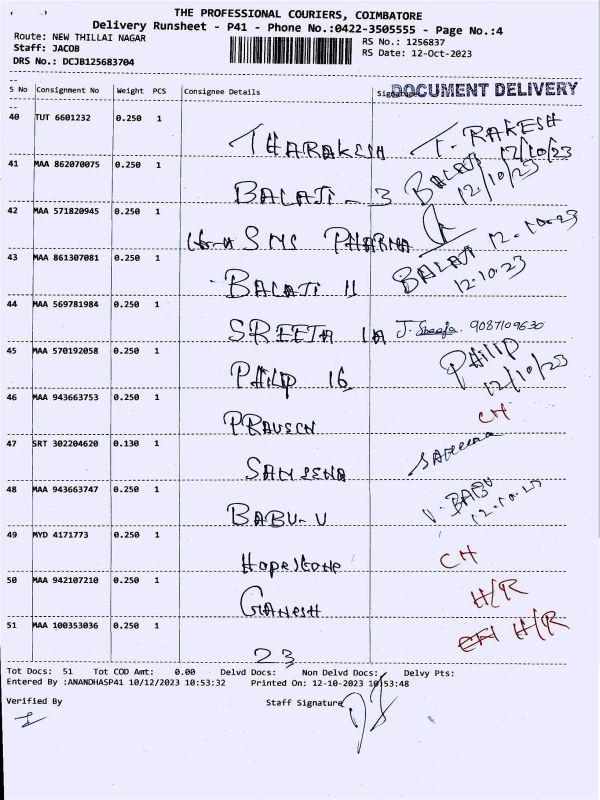 THE PROFESSIONAL COURIERS, COIMBATORE
Delivery Runsheet - P41 - Phone No.:0422-3505555 - Page No.:4
Route: NEW THILLAI NAGAR
RS No.: 1256837
Staff: JACOB
RS Date: 12-Oct-2023
DRS No.: DCJB125683704
DOCUMENT DELIVERY
S No Consignment No Weight PCS Consignee Details
40 TUT 6601232 0.250 1
THARAKESH T. RAKESH 12/10/23
41 MAA 862070075 0.250 1
BALAJI - 3 BALAJI 12/10/23
42 MAA 571820945 0.250 1
SMS PHARMA 12.10.23
43 MAA 861307081 0.250 1
BALAJI 11 BALAJI 12.10.23
44 MAA 569781984 0.250 1
SREEJA 1A J. Sreeja. 9087109630
45 MAA 570192058 0.250 1
PHILIP 16 PHILIP 12/10/23
46 MAA 943663753 0.250 1
PRAVEEN CH
47 SRT 302204620 0.130 1
48 MAA 943663747 0.250 1
BABU-V V. BABU
49 MYD 4171773 0.250 1
Hopestone CH
50 MAA 942107210 0.250 1
GANESH H/R
51 MAA 100353036 0.250 1
23 H/R
Tot Docs: 51 Tot COD Amt: 0.00 Delvd Docs: Non Delvd Docs: Delvy Pts:
Entered By :ANANDHASP41 10/12/2023 10:53:32 Printed On: 12-10-2023 10:53:48
Verified By Staff Signature